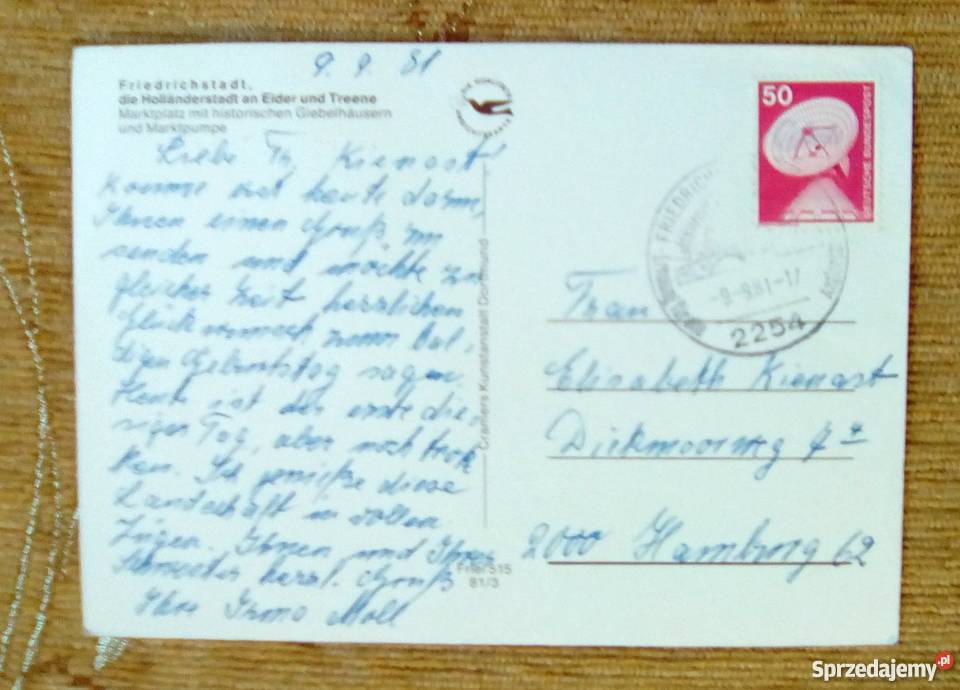 9.9.81
Friedrichstadt,
die Holländerstadt an Eider und Treene
Marktplatz mit historischen Giebelhäusern
und Marktpumpe
Liebe Fr. Kienast!
Komme erst heute dazu,
Ihnen einen Gruß zu
senden und möchte zu
gleicher Zeit herzlichen
Glückwunsch zum bal-
digen Geburtstag sagen.
Heute ist der erste die-
siger Tag, aber noch trok
ken. Ich genieße diese
Landschaft in vollen
Zügen. Ihnen und Ihrer
Schwester herzl. Gruß
Ihre Irmo Moll
Cramers Kunstanstalt Dortmund
81/3
50
DEUTSCHE BUNDESPOST
FRIEDRICH
-9.-9.81-17
2254
Frau
Elisabeth Kienast
Diekmoorweg
2000 Hamburg 62
Sprzedajemy.pl